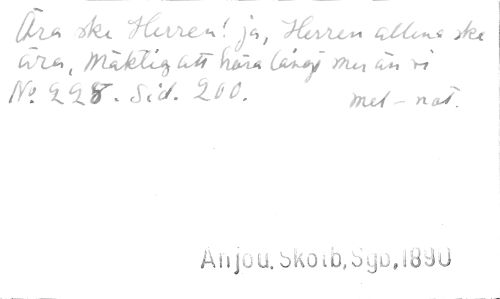 Ära ske Herren! ja, Herren allena ske
ära, Mäktig att höra långt mer än vi
No. 228. Sid. 200. mel-not.
Anjou, Skolb, Sgb, 1890